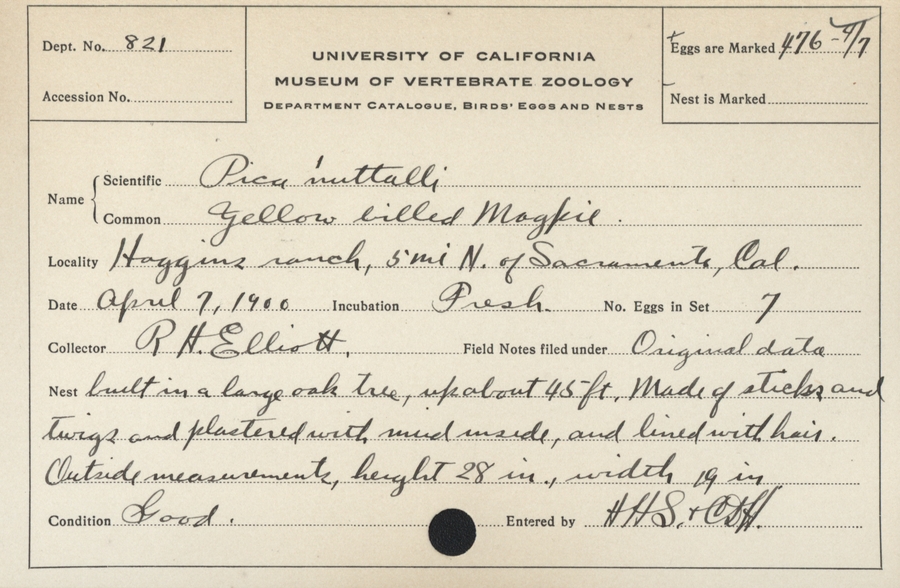 Dept. No. 821
Accession No.
UNIVERSITY OF CALIFORNIA
MUSEUM OF VERTEBRATE ZOOLOGY
DEPARTMENT CATALOGUE, BIRDS' EGGS AND NESTS
Eggs are Marked 476-4/7
Nest is Marked
Name
Scientific Pica nuttalli
Common Yellow billed Magpie.
Locality Haggins ranch, 5 mi N. of Sacramento, Cal.
Date April 7, 1900 Incubation Fresh. No. Eggs in Set 7
Collector R H. Elliott, Field Notes filed under Original data
Nest built in a large oak tree, up about 45 ft. Made of sticks and
twigs and plastered with mud inside, and lined with hair.
Outside measurements, height 28 in., width 19 in
Condition Good. Entered by HHS. &